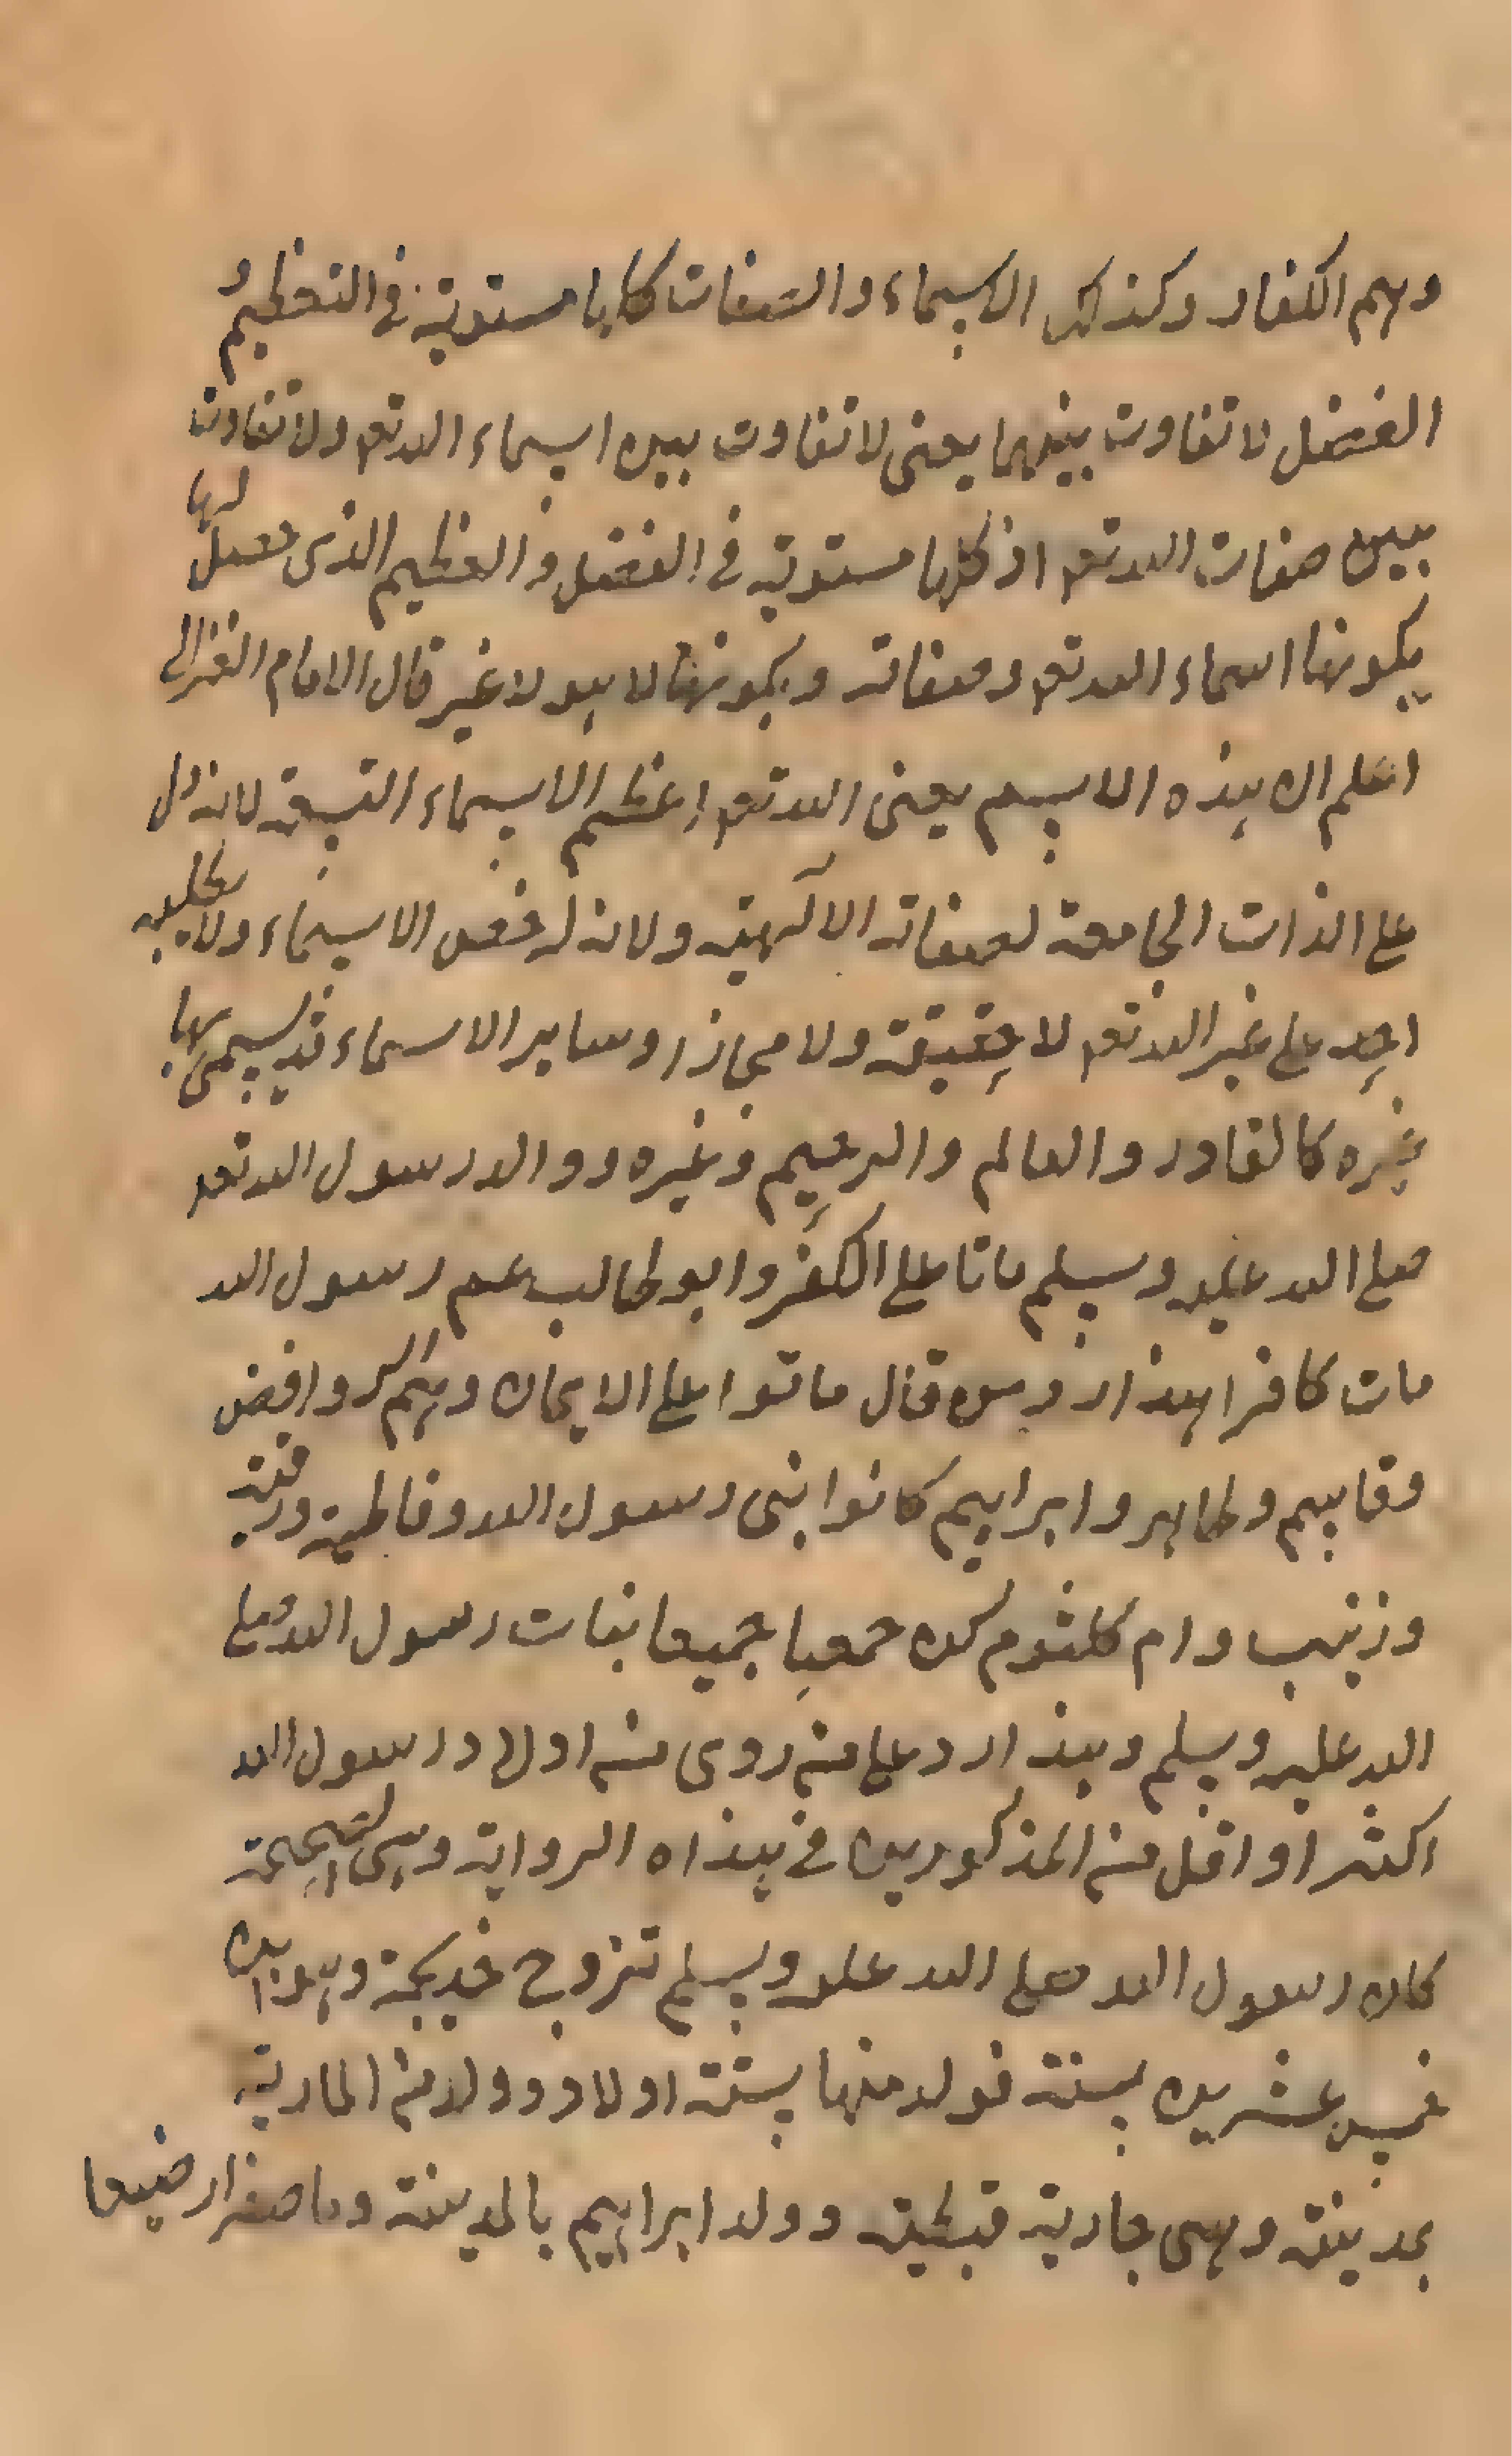 وهم الكفار وكذلك الاسماء والصفات كلها مستوية في التعظيم و
الفضل لا تفاوت بينهما يعنى لا تفاوت بين اسماء الله تعم ولا تفاوت
بين صفات الله تعم اذ كلها مستوية في الفضل والعظيم الذى حصل لها
بكونها اسماء الله تعم وصفاته وبكونها لا هو ولا غير قال الامام الغزالى
اعلم ان هذه الاسم يعنى الله تعم اعظم الاسماء التسعة لانه دل
على الذات الجامعة لصفاته الآلهية ولانه اخص الاسماء ولا يطلقه
احد على غير الله تعم لا حقيقة ولا مجازا وساير الاسماء قد يسمى بها
غيره كالقادر والعالم والرحيم وغيره ووالد رسول الله تعم
صلى الله عليه وسلم ماتا على الكفر وابو طالب عم رسول الله
مات كافرا هذا رد من قال ماتوا على الايمان وهم الروافض
وقاسم وطاهر وابراهيم كانوا بنى رسول الله وفاطمة ورقية
وزينب وام كلثوم كن جمعا جميعا بنات رسول الله صلى
الله عليه وسلم وهذا رد على من روى من اولاد رسول الله
اكثر او اقل من المذكورين في هذاه الرواية وهى الصحيحة
كان رسول الله صلى الله عليه وسلم تزوج خديجة وهو ابن
خمس عشرين سنة فولد منها ستة اولاد وولد من المارية
بمدينة وهى جارية قبطية وولد ابراهيم بالمدينة وما صغرا رضيعا